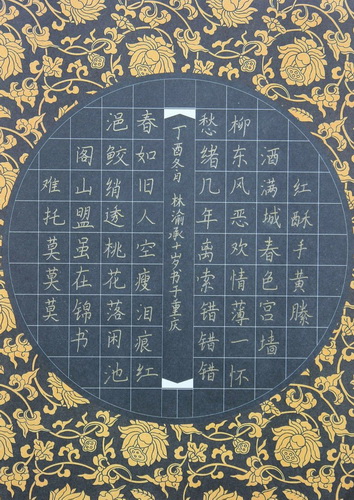 红酥手黄縢
酒满城春色宫墙
柳东风恶欢情薄一怀
愁绪几年离索错错错
丁酉冬月 林渝承十岁书于重庆
春如旧人空瘦泪痕红
浥鲛绡透桃花落闲池
阁山盟虽在锦书
难托莫莫莫